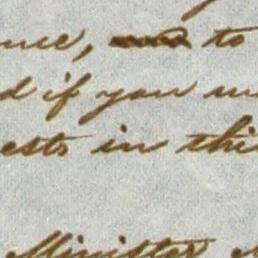 nce, to
d if you
ests in this
Minister